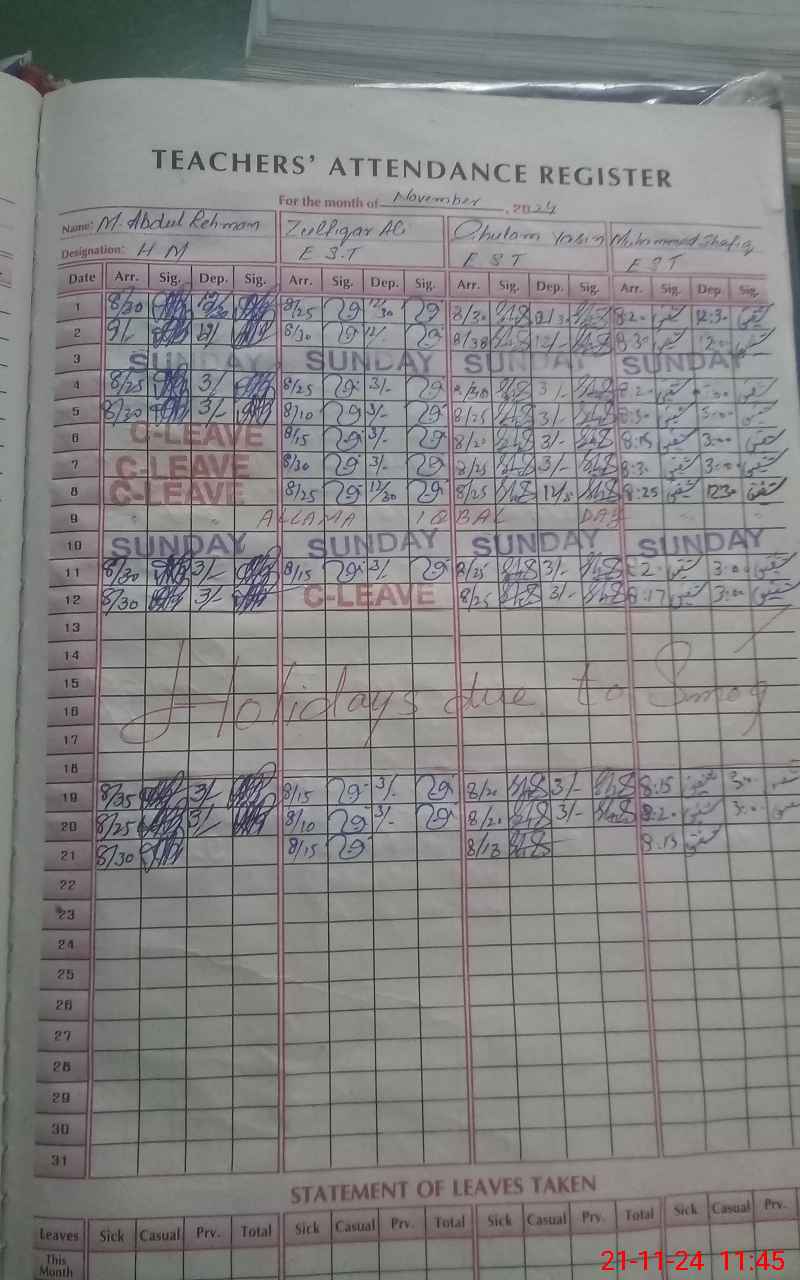 TEACHERS' ATTENDANCE REGISTER
For the month of November, 2024
Name: M. Abdul Rehman Zulfiqar Ali Ghulam Yasin Muhammad Shafiq
Designation: H M E S T E S T E S T
Date Arr. Sig. Dep. Sig. Arr. Sig. Dep. Sig. Arr. Sig. Dep. Sig. Arr. Sig. Dep. Sig.
1 8/30 12/30 8/25 12/30 8/30 12/30 8:20 12:30
2 9/- 12/ 8/30 12/- 8/30 12/- 8:30 12:00
3 SUNDAY SUNDAY SUNDAY SUNDAY
4 8/25 3/- 8/25 3/- 8/30 3/-
5 8/30 3/- 8/10 3/- 8/25 3/- 8:30 3:00
6 C-LEAVE 8/15 3/- 8/20 3/- 8:15 3:00
7 C-LEAVE 8/30 3/- 8/25 3/- 8:30 3:00
8 C-LEAVE 8/25 12/30 8/25 8:25 1230
9 ALLAMA IQBAL DAY
10 SUNDAY SUNDAY SUNDAY SUNDAY
11 8/30 3/- 8/15 3/- 8/25 3/- 3:00
12 8/30 3/- C-LEAVE 8/25 3/- 8:17 3:00
13
14
15
Holidays due to Smog
16
17
18
19 8/35 3/- 8/15 3/- 8/20 3/- 8:15 3:00
20 8/25 3/- 8/10 3/- 8/20 3/- 8:20 3:00
21 8/30 8/15 8/13 8:13
22
23
24
25
26
27
28
29
30
31
STATEMENT OF LEAVES TAKEN
Leaves Sick Casual Prv. Total Sick Casual Prv. Total Sick Casual Prv. Total Sick Casual Prv.
This
Month
21-11-24 11:45